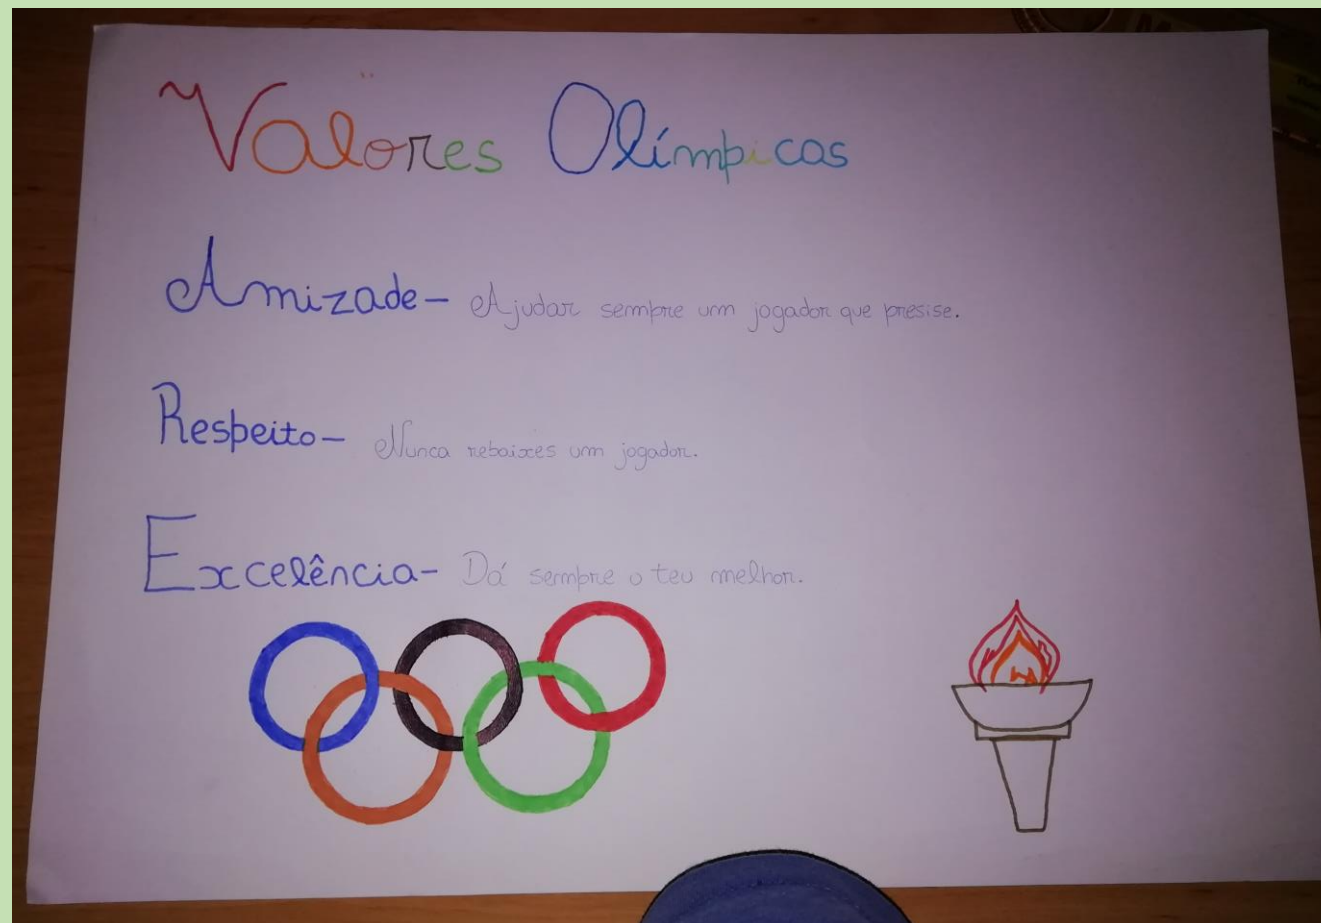 Valores Olímpicos
Amizade- Ajudar sempre um jogador que presise.
Respeito- Nunca rebaixes um jogador.
Excelência- Dá sempre o teu melhor.